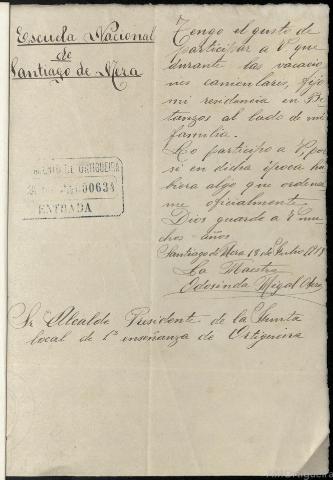 Escuela Nacional
de
Santiago de Mera
Tengo el gusto de
participar a V. que
durante las vacacio
nes caniculares, fijo
mi residencia en Be
tanzos al lado de mi
familia.
Lo participo a V. por
si en dicha época hu
biera algo que ordenar
me oficialmente.
Dios guarde a V. mu
chos años
Santiago de Mera 18 de Julio 1918
La Maestra
Odosinda Migal
ORTIGUEIRA
00634
ENTRADA
Sr. Alcalde Presidente de la Junta
local de 1ª enseñanza de Ortigueira